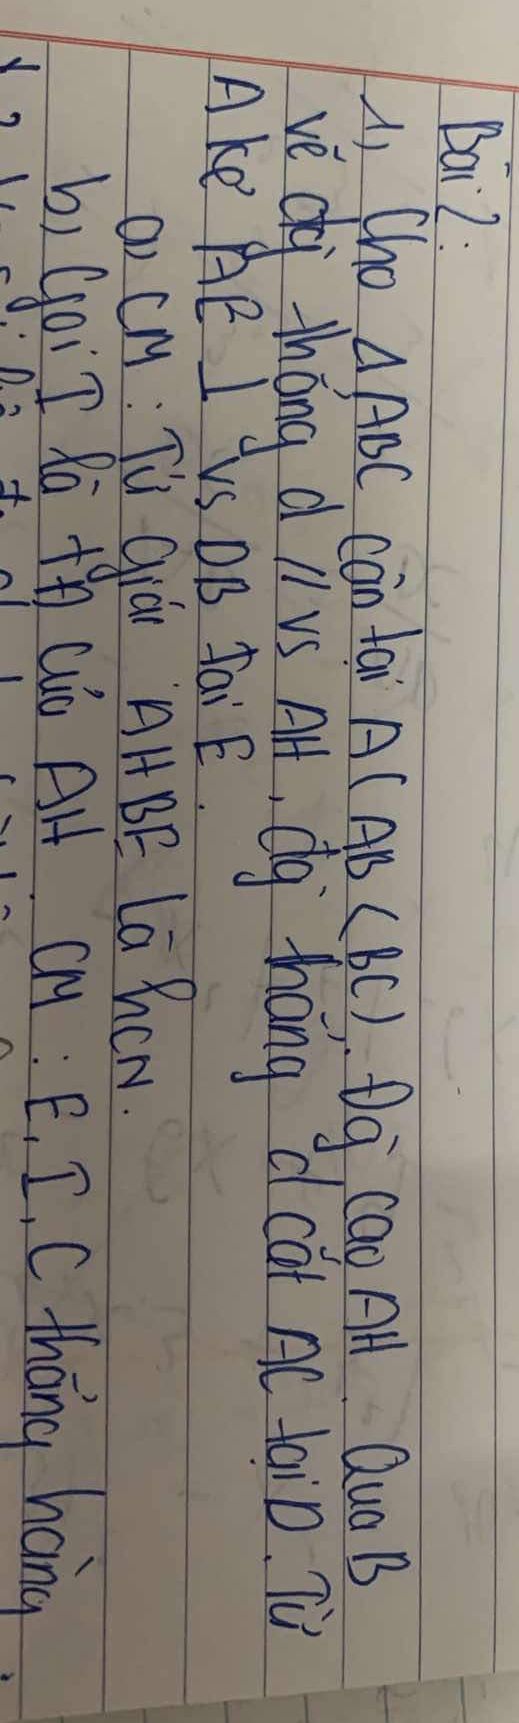 Bài 2:
1, Cho Δ ABC cân tại A (AB < BC). Đg cao AH. Qua B
vẽ đg thẳng d // vs AH, đg thẳng d cắt AC tại D. Từ
A kẻ AE ⊥ vs DB tại E.
a, CM: Tứ giác AHBE là hcN.
b, Gọi I là tđ của AH CM: E, I, C thẳng hàng